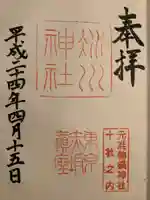 奉拝
氷川
神社
元准勅願神社
十社之内
平成二十四年四月十五日